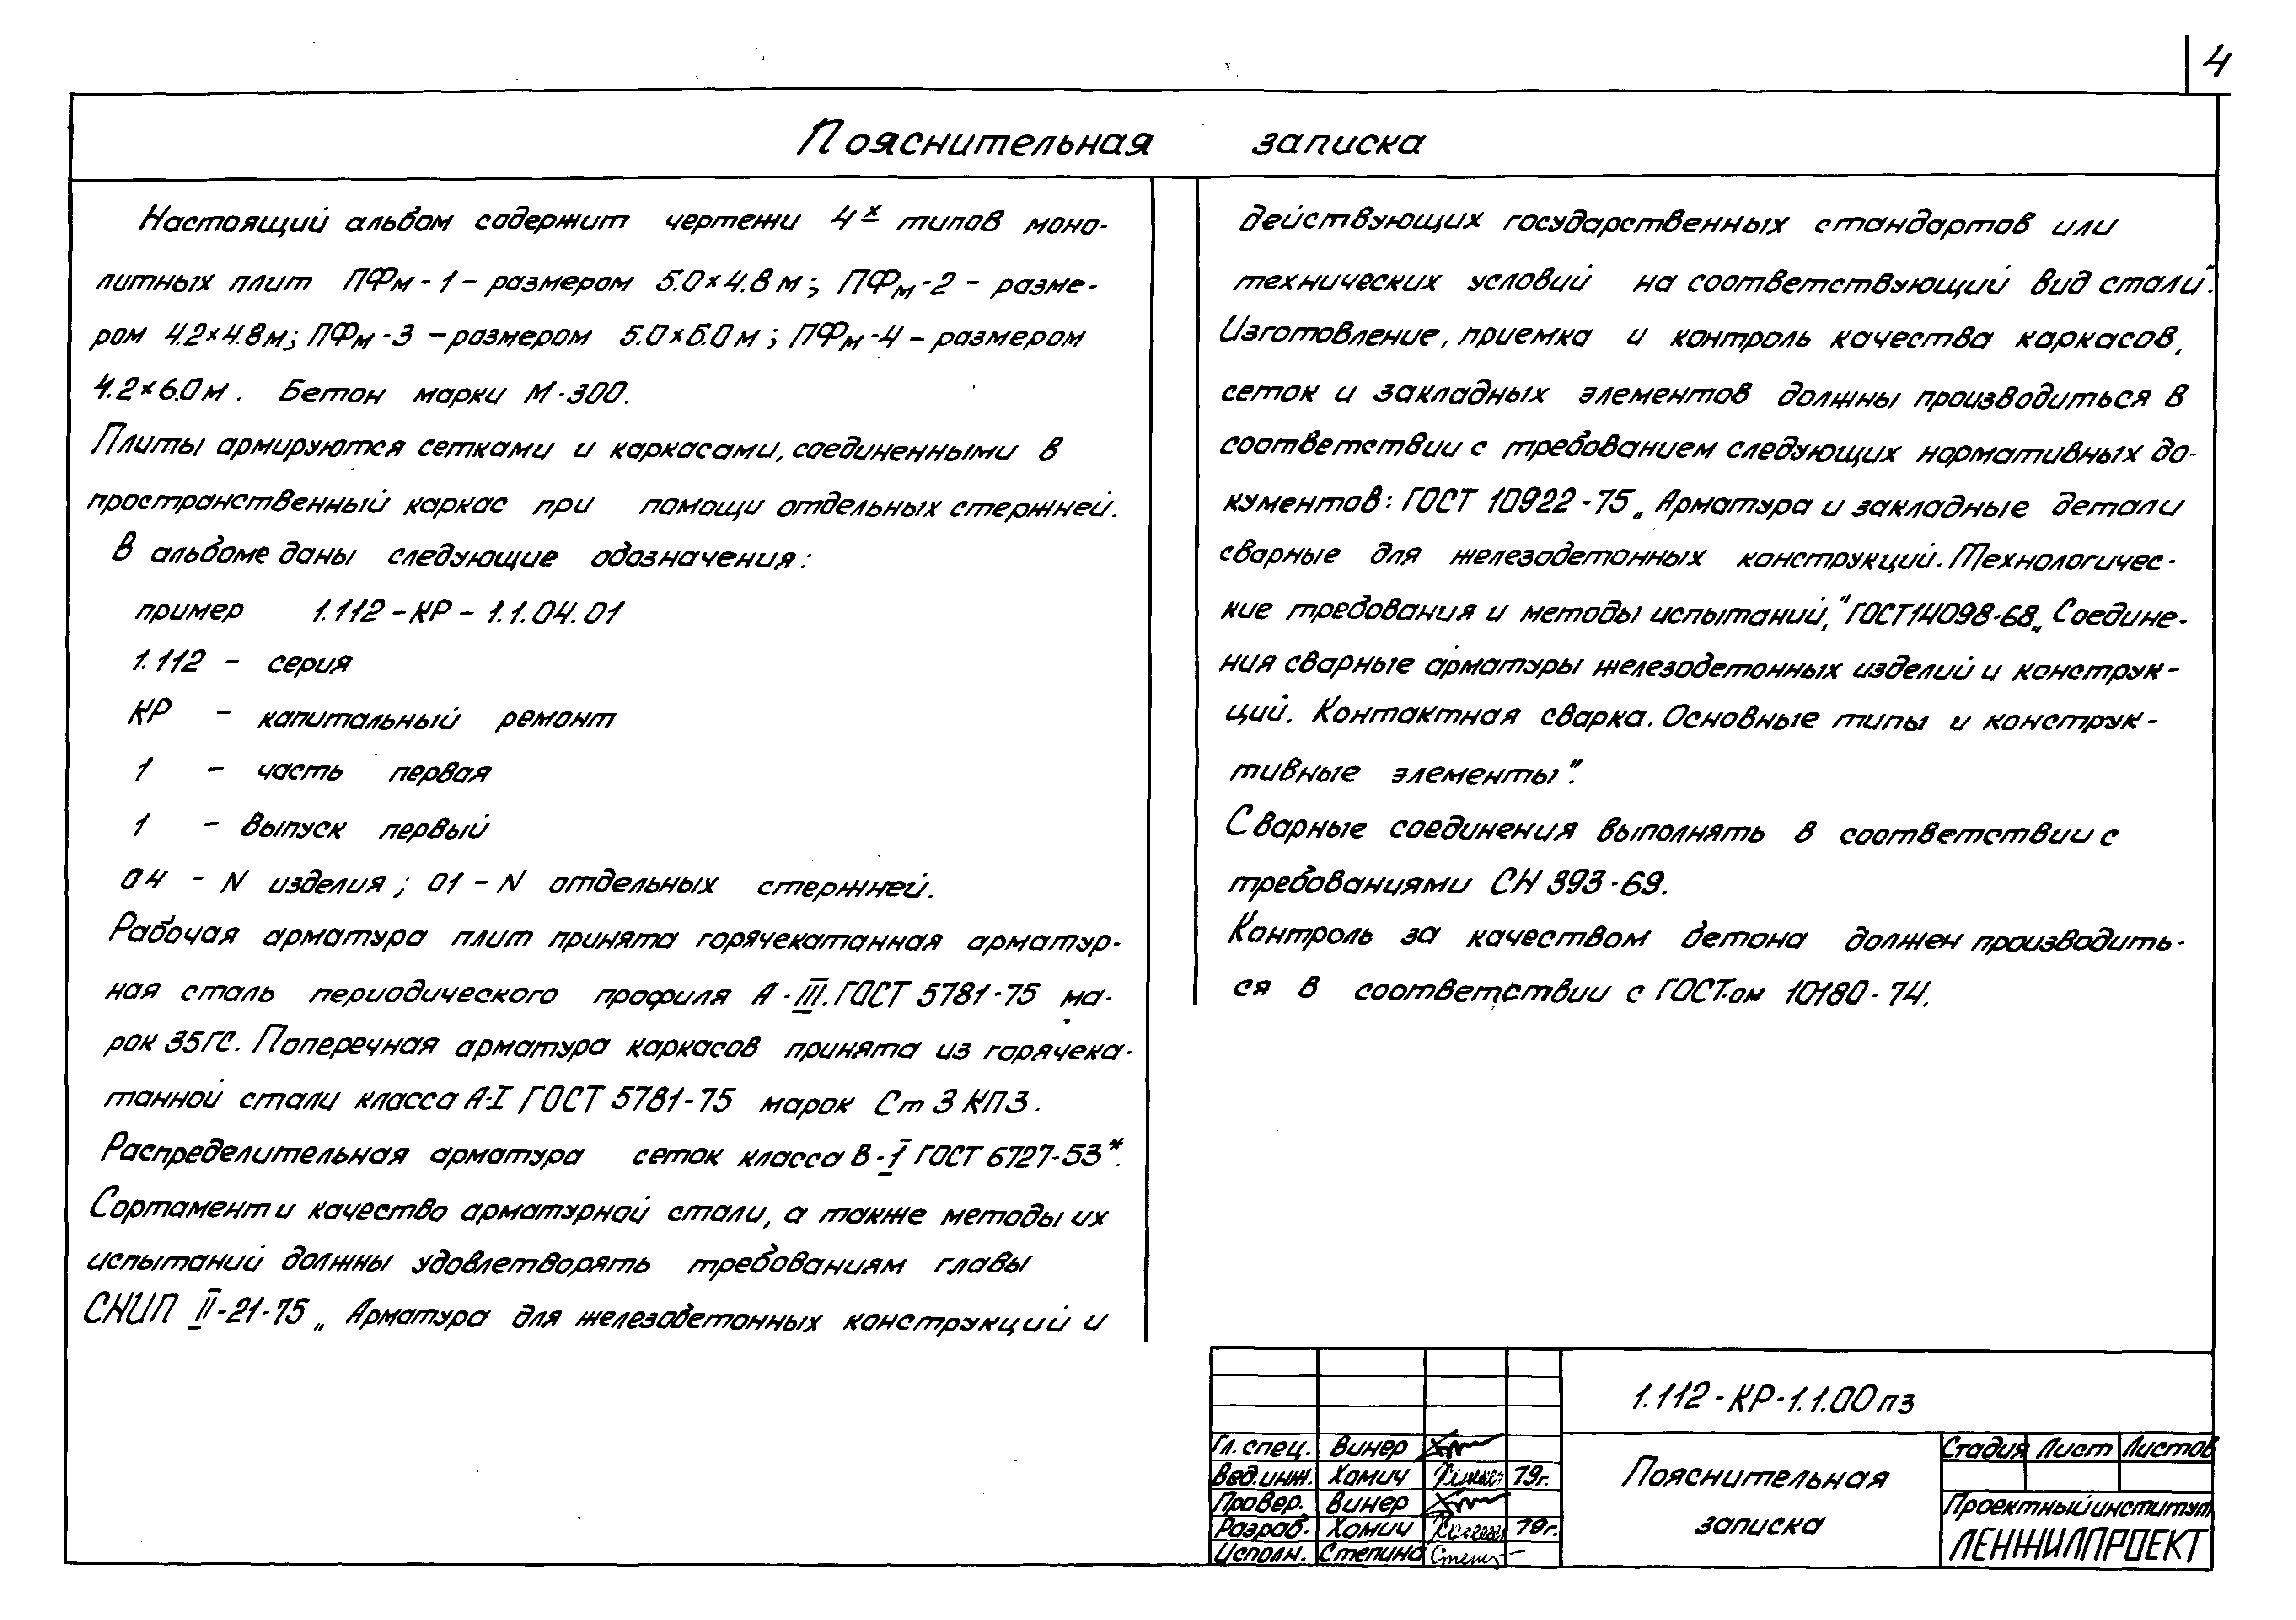 4
Пояснительная записка
Настоящий альбом содержит чертежи 4х типов моно-
литных плит ПФм-1 – размером 5.0×4.8 м; ПФм-2 – разме-
ром 4.2×4.8м; ПФм-3 – размером 5.0×6.0 м; ПФм-4 – размером
4.2×6.0 м. Бетон марки М-300.
Плиты армируются сетками и каркасами, соединенными в
пространственный каркас при помощи отдельных стержней.
В альбоме даны следующие обозначения:
пример 1.112-КР-1.1.04.01
1.112 – серия
КР – капитальный ремонт
1 – часть первая
1 – выпуск первый
04 – N изделия; 01 – N отдельных стержней.
Рабочая арматура плит принята горячекатанная арматур-
ная сталь периодического профиля А-III. ГОСТ 5781-75 ма-
рок 35ГС. Поперечная арматура каркасов принята из горячека-
танной стали класса А-I ГОСТ 5781-75 марок Ст 3 КП3.
Распределительная арматура сеток класса В-I ГОСТ 6727-53*.
Сортамент и качество арматурной стали, а также методы их
испытаний должны удовлетворять требованиям главы
СНИП II-21-75 „Арматура для железобетонных конструкций и
действующих государственных стандартов или
технических условий на соответствующий вид стали".
Изготовление, приемка и контроль качества каркасов,
сеток и закладных элементов должны производиться в
соответствии с требованием следующих нормативных до-
кументов: ГОСТ 10922-75 „Арматура и закладные детали
сварные для железобетонных конструкций. Технологичес-
кие требования и методы испытаний," ГОСТ 14098-68 „Соедине-
ния сварные арматуры железобетонных изделий и конструк-
ций. Контактная сварка. Основные типы и конструк-
тивные элементы".
Сварные соединения выполнять в соответствии с
требованиями СН 393-69.
Контроль за качеством бетона должен производить-
ся в соответствии с ГОСТ-ом 10180-74.
1.112-КР-1.1.00 пз
Гл. спец. Винер
Вед. инж. Хомич 79г.
Провер. Винер
Разраб. Хомич 79г.
Исполн. Степина
Пояснительная
записка
Стадия Лист Листов
Проектный институт
ЛЕНЖИЛПРОЕКТ